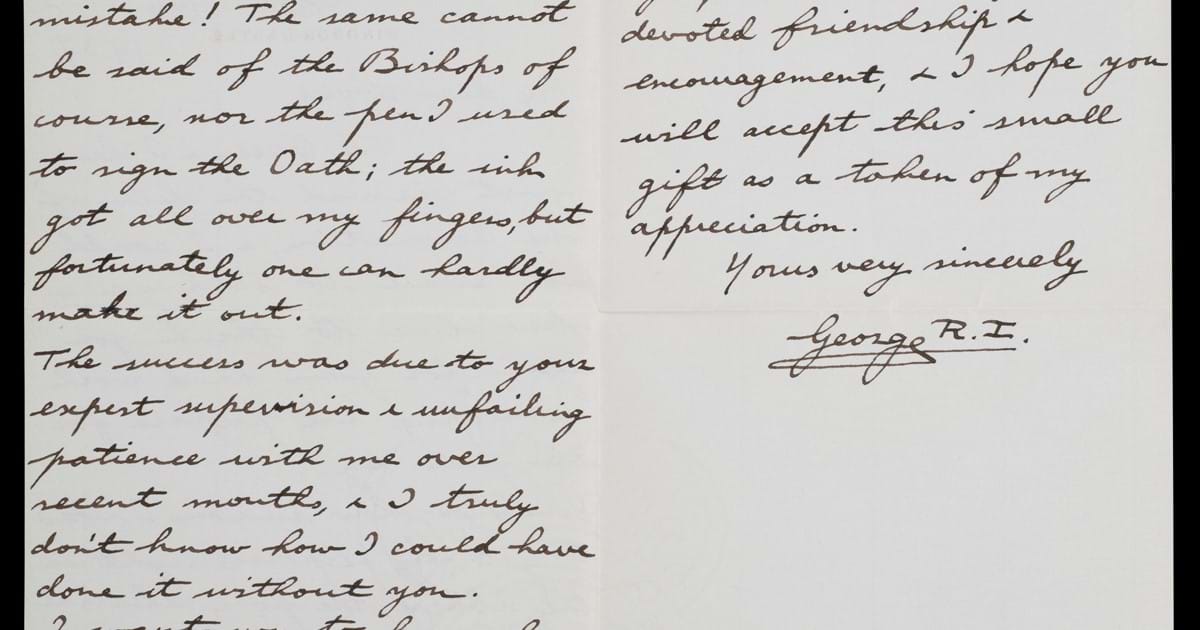 mistake! The same cannot
be said of the Bishops of
course, nor the pen I used
to sign the Oath; the ink
got all over my fingers, but
fortunately one can hardly
make it out.
The success was due to your
expert supervision & unfailing
patience with me over
recent months, & I truly
don't know how I could have
done it without you.
I want you to know
devoted friendship &
encouragement, & I hope you
will accept this small
gift as a token of my
appreciation.
Yours very sincerely
George R.I.